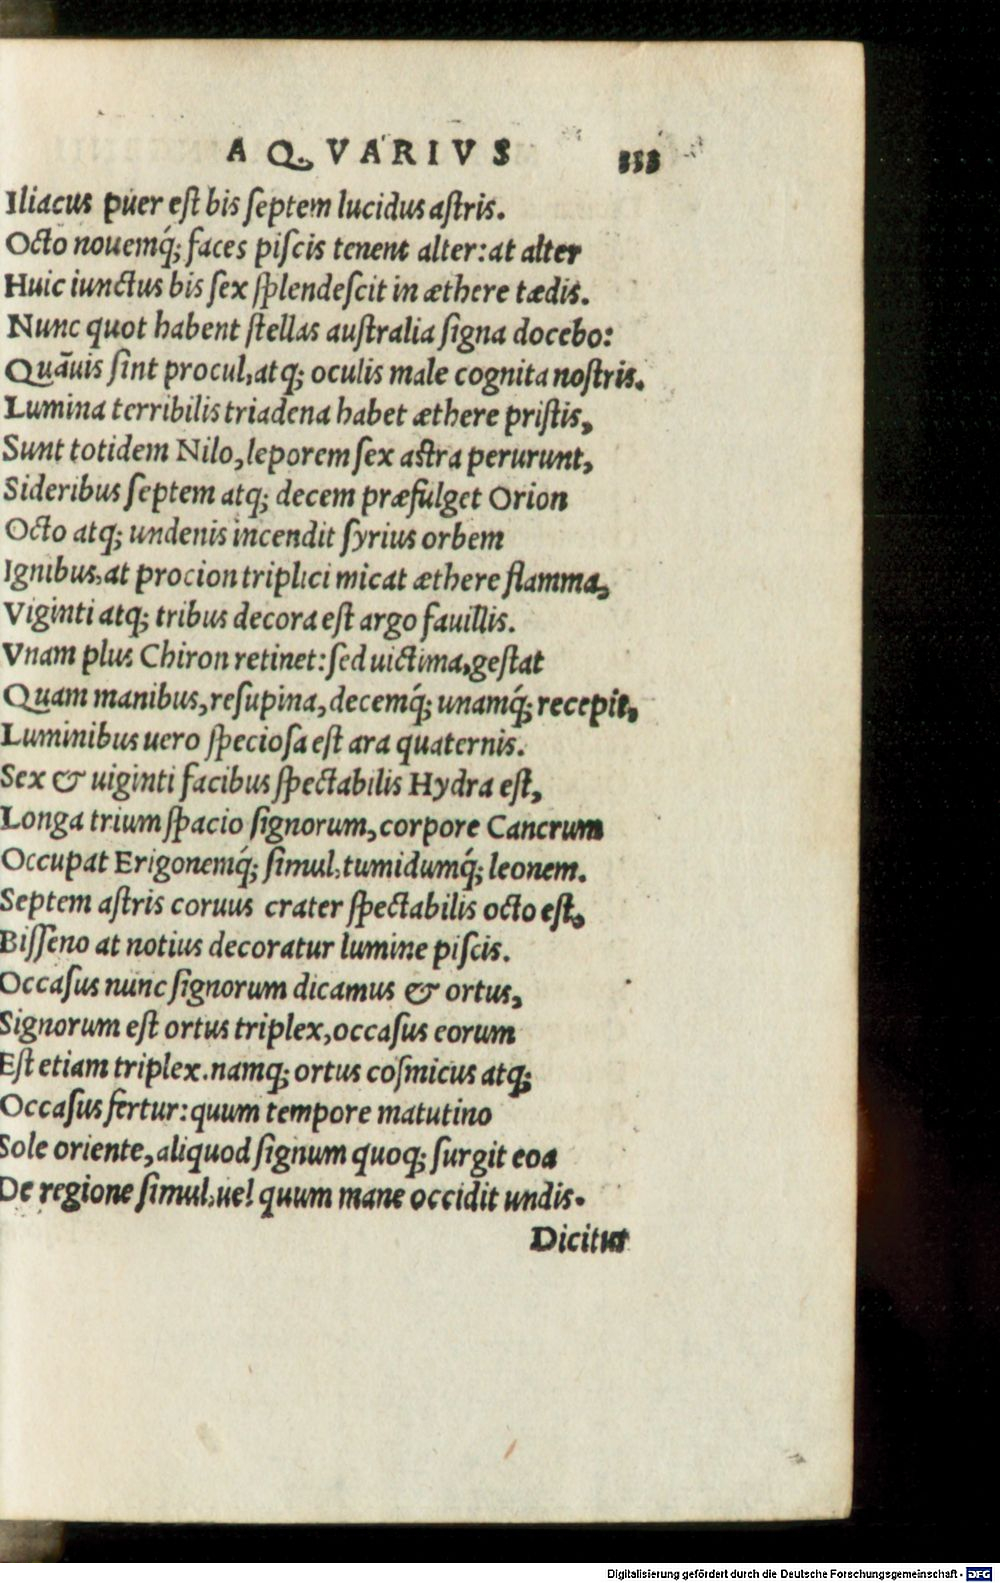 AQVARIVS 333
Iliacus puer eſt bis ſeptem lucidus aſtris.
Octo nouemq́; faces piſcis tenent alter: at alter
Huic iunctus bis ſex ſplendeſcit in æthere tædis.
Nunc quot habent ſtellas auſtralia ſigna docebo:
Quāuis ſint procul, atq; oculis male cognita noſtris.
Lumina terribilis triadena habet æthere priſtis,
Sunt totidem Nilo, leporem ſex aſtra perurunt,
Sideribus ſeptem atq; decem præfulget Orion
Octo atq; undenis incendit ſyrius orbem
Ignibus, at procion triplici micat æthere flamma,
Viginti atq; tribus decora eſt argo fauillis.
Vnam plus Chiron retinet: ſed uictima, geſtat
Quam manibus, reſupina, decemq́; unamq́; recepit,
Luminibus uero ſpecioſa eſt ara quaternis.
Sex & uiginti facibus ſpectabilis Hydra eſt,
Longa trium ſpacio ſignorum, corpore Cancrum
Occupat Erigonemq́; ſimul, tumidumq́; leonem.
Septem aſtris coruus crater ſpectabilis octo eſt,
Biſſeno at notius decoratur lumine piſcis.
Occaſus nunc ſignorum dicamus & ortus,
Signorum eſt ortus triplex, occaſus eorum
Eſt etiam triplex. namq; ortus coſmicus atq;
Occaſus fertur: quum tempore matutino
Sole oriente, aliquod ſignum quoq; ſurgit eoa
De regione ſimul, uel quum mane occidit undis.
Dicitur
Digitalisierung gefördert durch die Deutsche Forschungsgemeinschaft - DFG